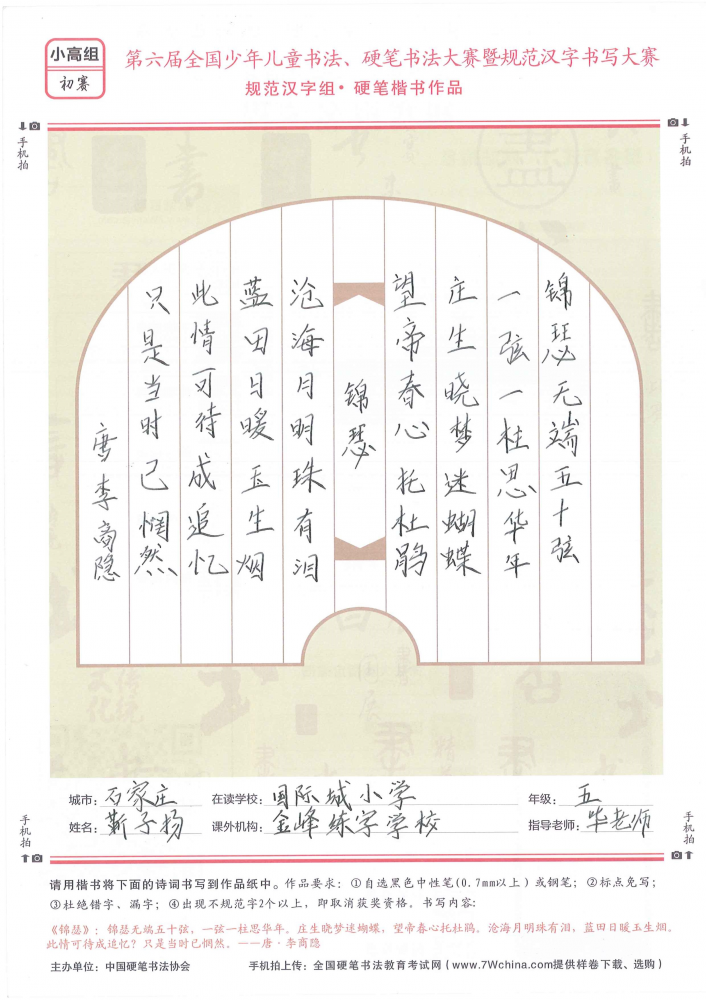 小高组
初赛
第六届全国少年儿童书法、硬笔书法大赛暨规范汉字书写大赛
规范汉字组·硬笔楷书作品
手机拍
手机拍
锦瑟无端五十弦
一弦一柱思华年
庄生晓梦迷蝴蝶
望帝春心托杜鹃
锦瑟
沧海月明珠有泪
蓝田日暖玉生烟
此情可待成追忆
只是当时已惘然
唐李商隐
城市：石家庄 在读学校：国际城小学 年级：五
姓名：靳子扬 课外机构：金峰练字学校 指导老师：毕老师
手机拍
手机拍
请用楷书将下面的诗词书写到作品纸中。作品要求：①自选黑色中性笔(0.7mm以上)或钢笔；②标点免写；
③杜绝错字、漏字；④出现不规范字2个以上，即取消获奖资格。书写内容：
《锦瑟》：锦瑟无端五十弦，一弦一柱思华年。庄生晓梦迷蝴蝶，望帝春心托杜鹃。沧海月明珠有泪，蓝田日暖玉生烟。
此情可待成追忆？只是当时已惘然。——唐·李商隐
主办单位：中国硬笔书法协会 手机拍上传：全国硬笔书法教育考试网(www.7Wchina.com提供样卷下载、选购)